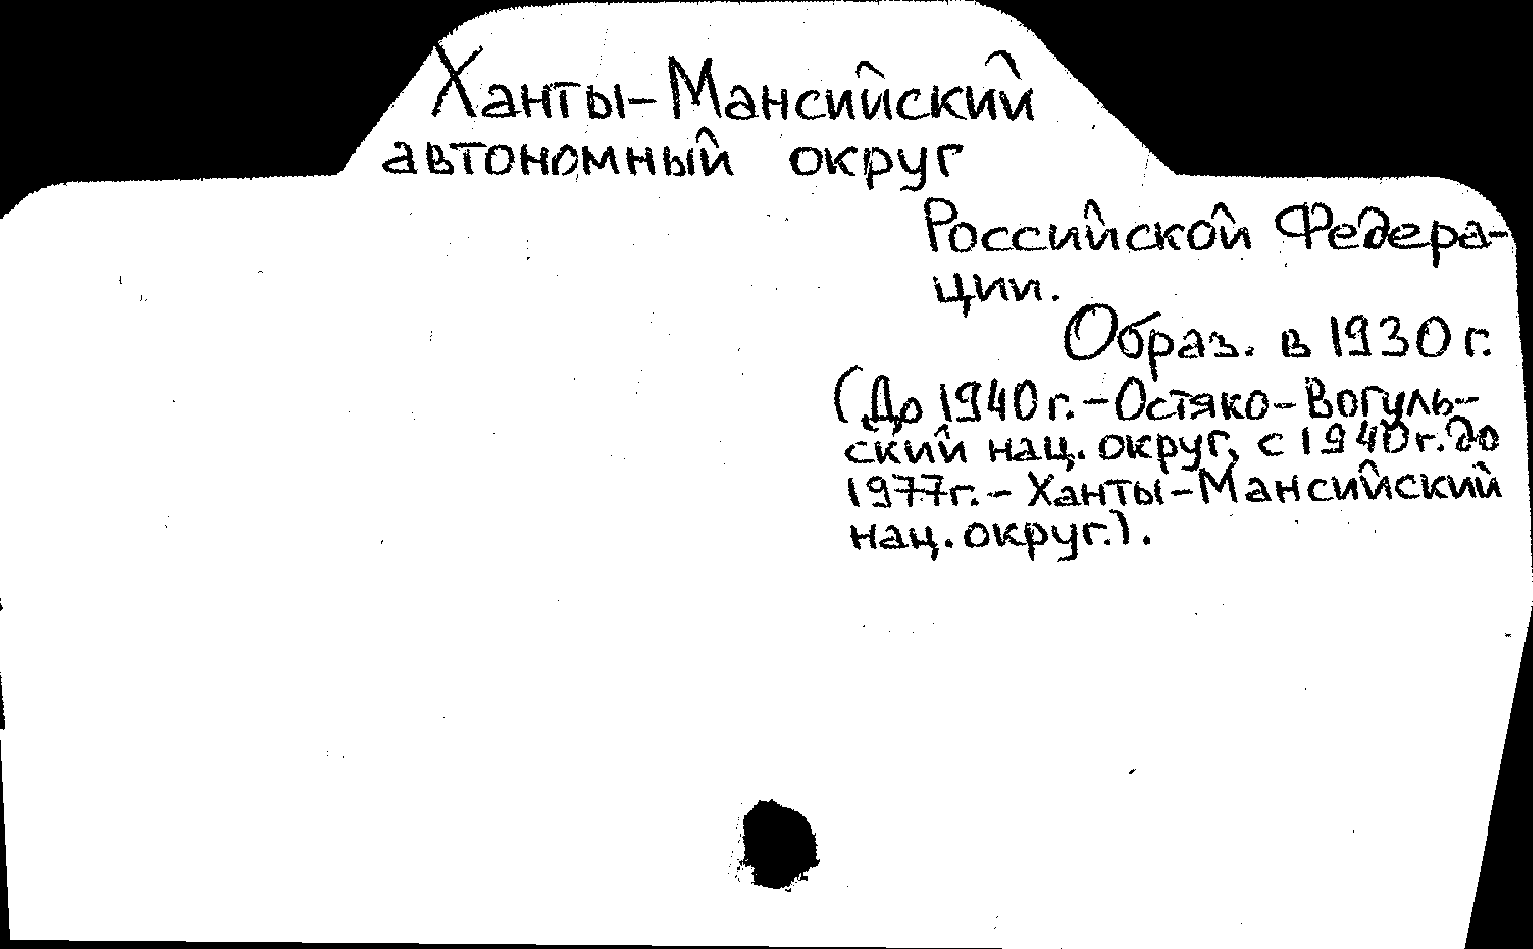 Ханты-Мансийский
автономный округ
Российской Федера-
ции.
Образ. в 1930 г.
(До 1940 г. - Остяко-Вогуль-
ский нац. округ, с 1940 г. до
1977 г. - Ханты-Мансийский
нац. округ.).